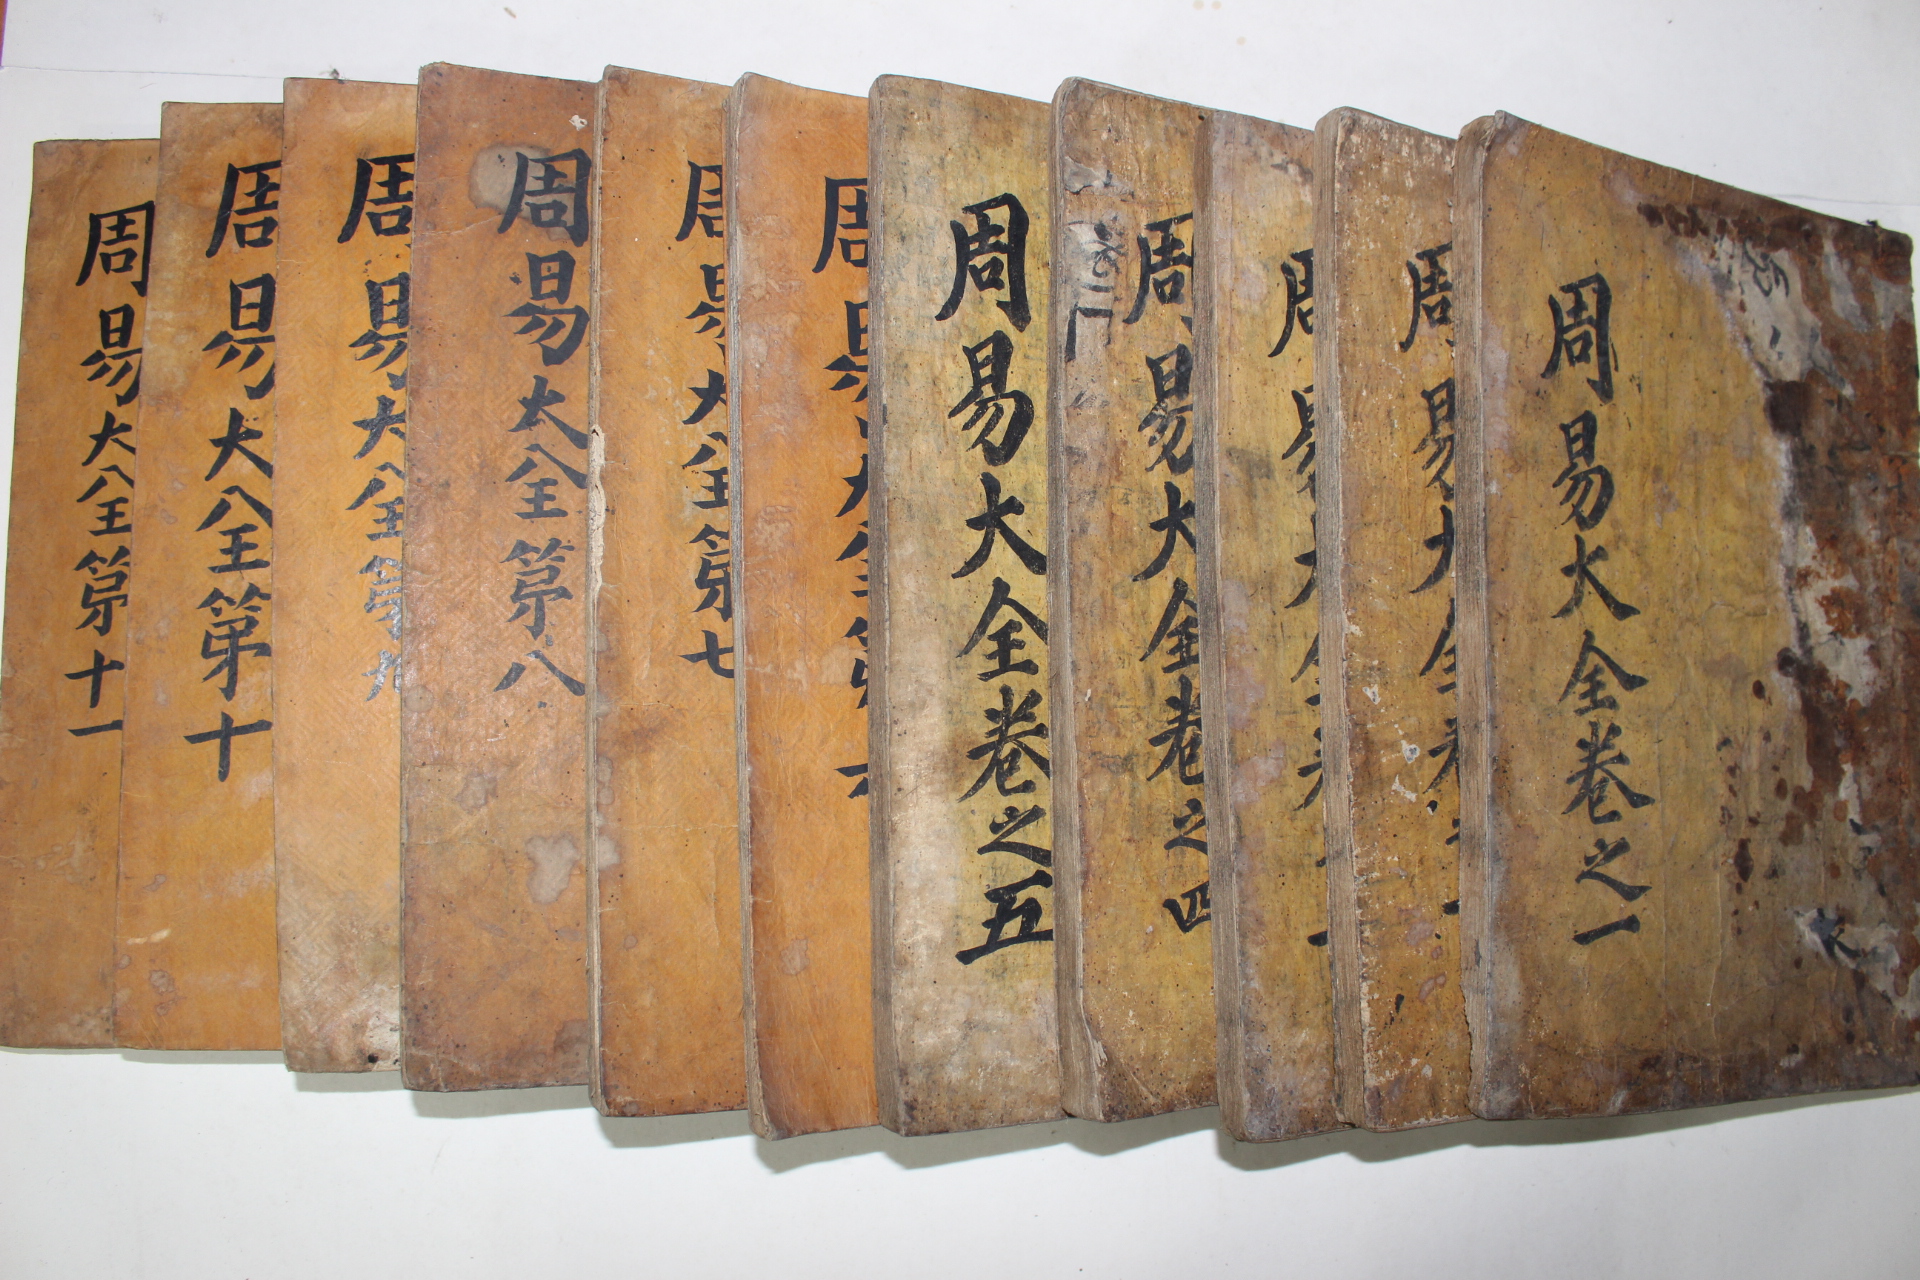 周易大全卷之一
周易大全卷
周易大全卷
周易大全卷之四
周易大全卷之五
周易大全第六
周易大全第七
周易大全第八
周易大全第九
周易大全第十
周易大全第十一